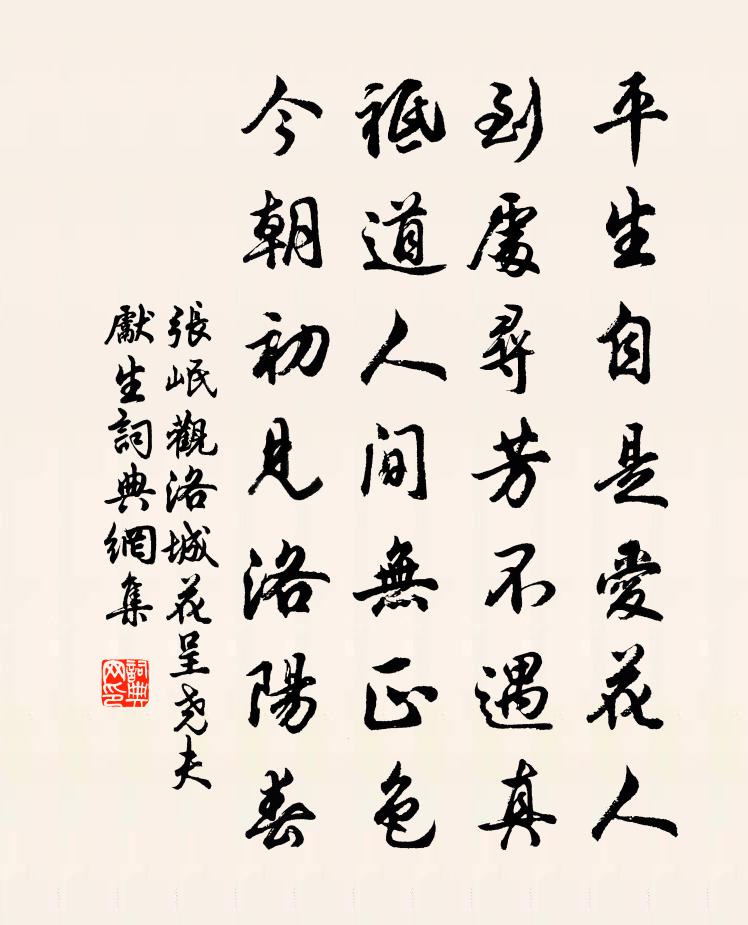 平生自是愛花人
到處尋芳不遇真
祗道人間無正色
今朝初見洛陽春
張岷觀洛城花呈尧夫
獻生詞典網集
詞典網印